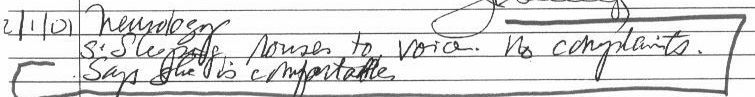 2/1/01 Neurology
S: Sleeping rouses to voice. No complaints.
Says she is comfortable